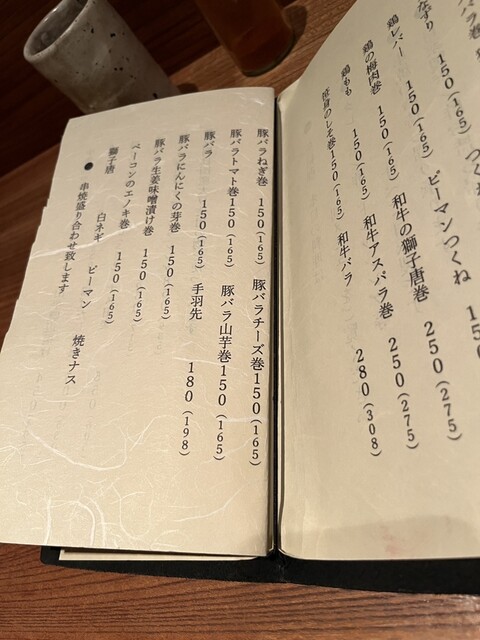 なずり 150(165) つくね
鶏レバー 150(165) ピーマンつくね 150
鶏の梅肉巻 150(165) 和牛の獅子唐巻 250(275)
鶏もも 150(165) 和牛アスパラ巻 250(275)
笹身のしそ巻 150(165) 和牛バラ 280(308)
豚バラねぎ巻 150(165) 豚バラチーズ巻 150(165)
豚バラトマト巻 150(165) 豚バラ山芋巻 150(165)
豚バラ 150(165) 手羽先 180(198)
豚バラにんにくの芽巻 150(165)
豚バラ生姜味噌漬け巻 150(165)
ベーコンのエノキ巻 150(165)
獅子唐 白ネギ ピーマン 焼きナス
● 串焼盛り合わせ致します